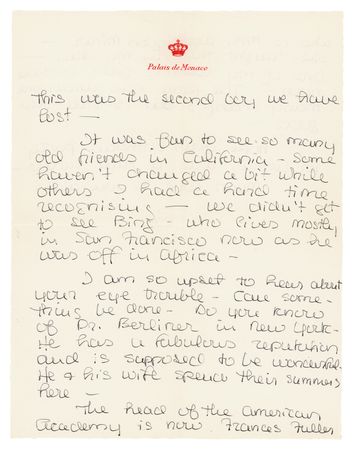 Palais de Monaco
this was the second boy we have
lost —
It was fun to see so many
old friends in California – some
haven't changed a bit while
others I had a hard time
recognising — we didn't get
to see Bing – who lives mostly
in San Francisco now as he
was off in Africa –
I am so upset to hear about
your eye trouble – Can some-
thing be done – Do you know
of Dr. Berliner in New York –
He has a fabulous reputation
and is supposed to be wonderful.
He & his wife spend their summers
here —
The head of the American
Academy is now Frances Fuller